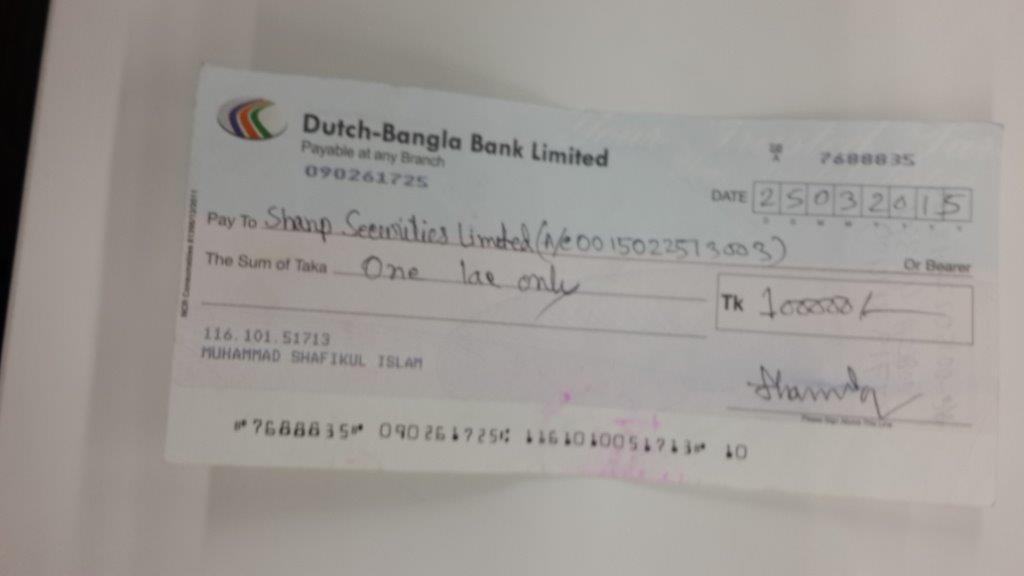 Dutch-Bangla Bank Limited
Payable at any Branch
090261725
SB
A
7688835
DATE 25032015
D D M M Y Y Y Y
Pay To Sharp Securities Limited (A/c 0015022573003)
Or Bearer
The Sum of Taka One lac only
Tk 100000/-
116.101.51713
MUHAMMAD SHAFIKUL ISLAM
Please Sign Above This Line
⑈7688835⑈ 090261725⑆ 1161010051713⑈ 10